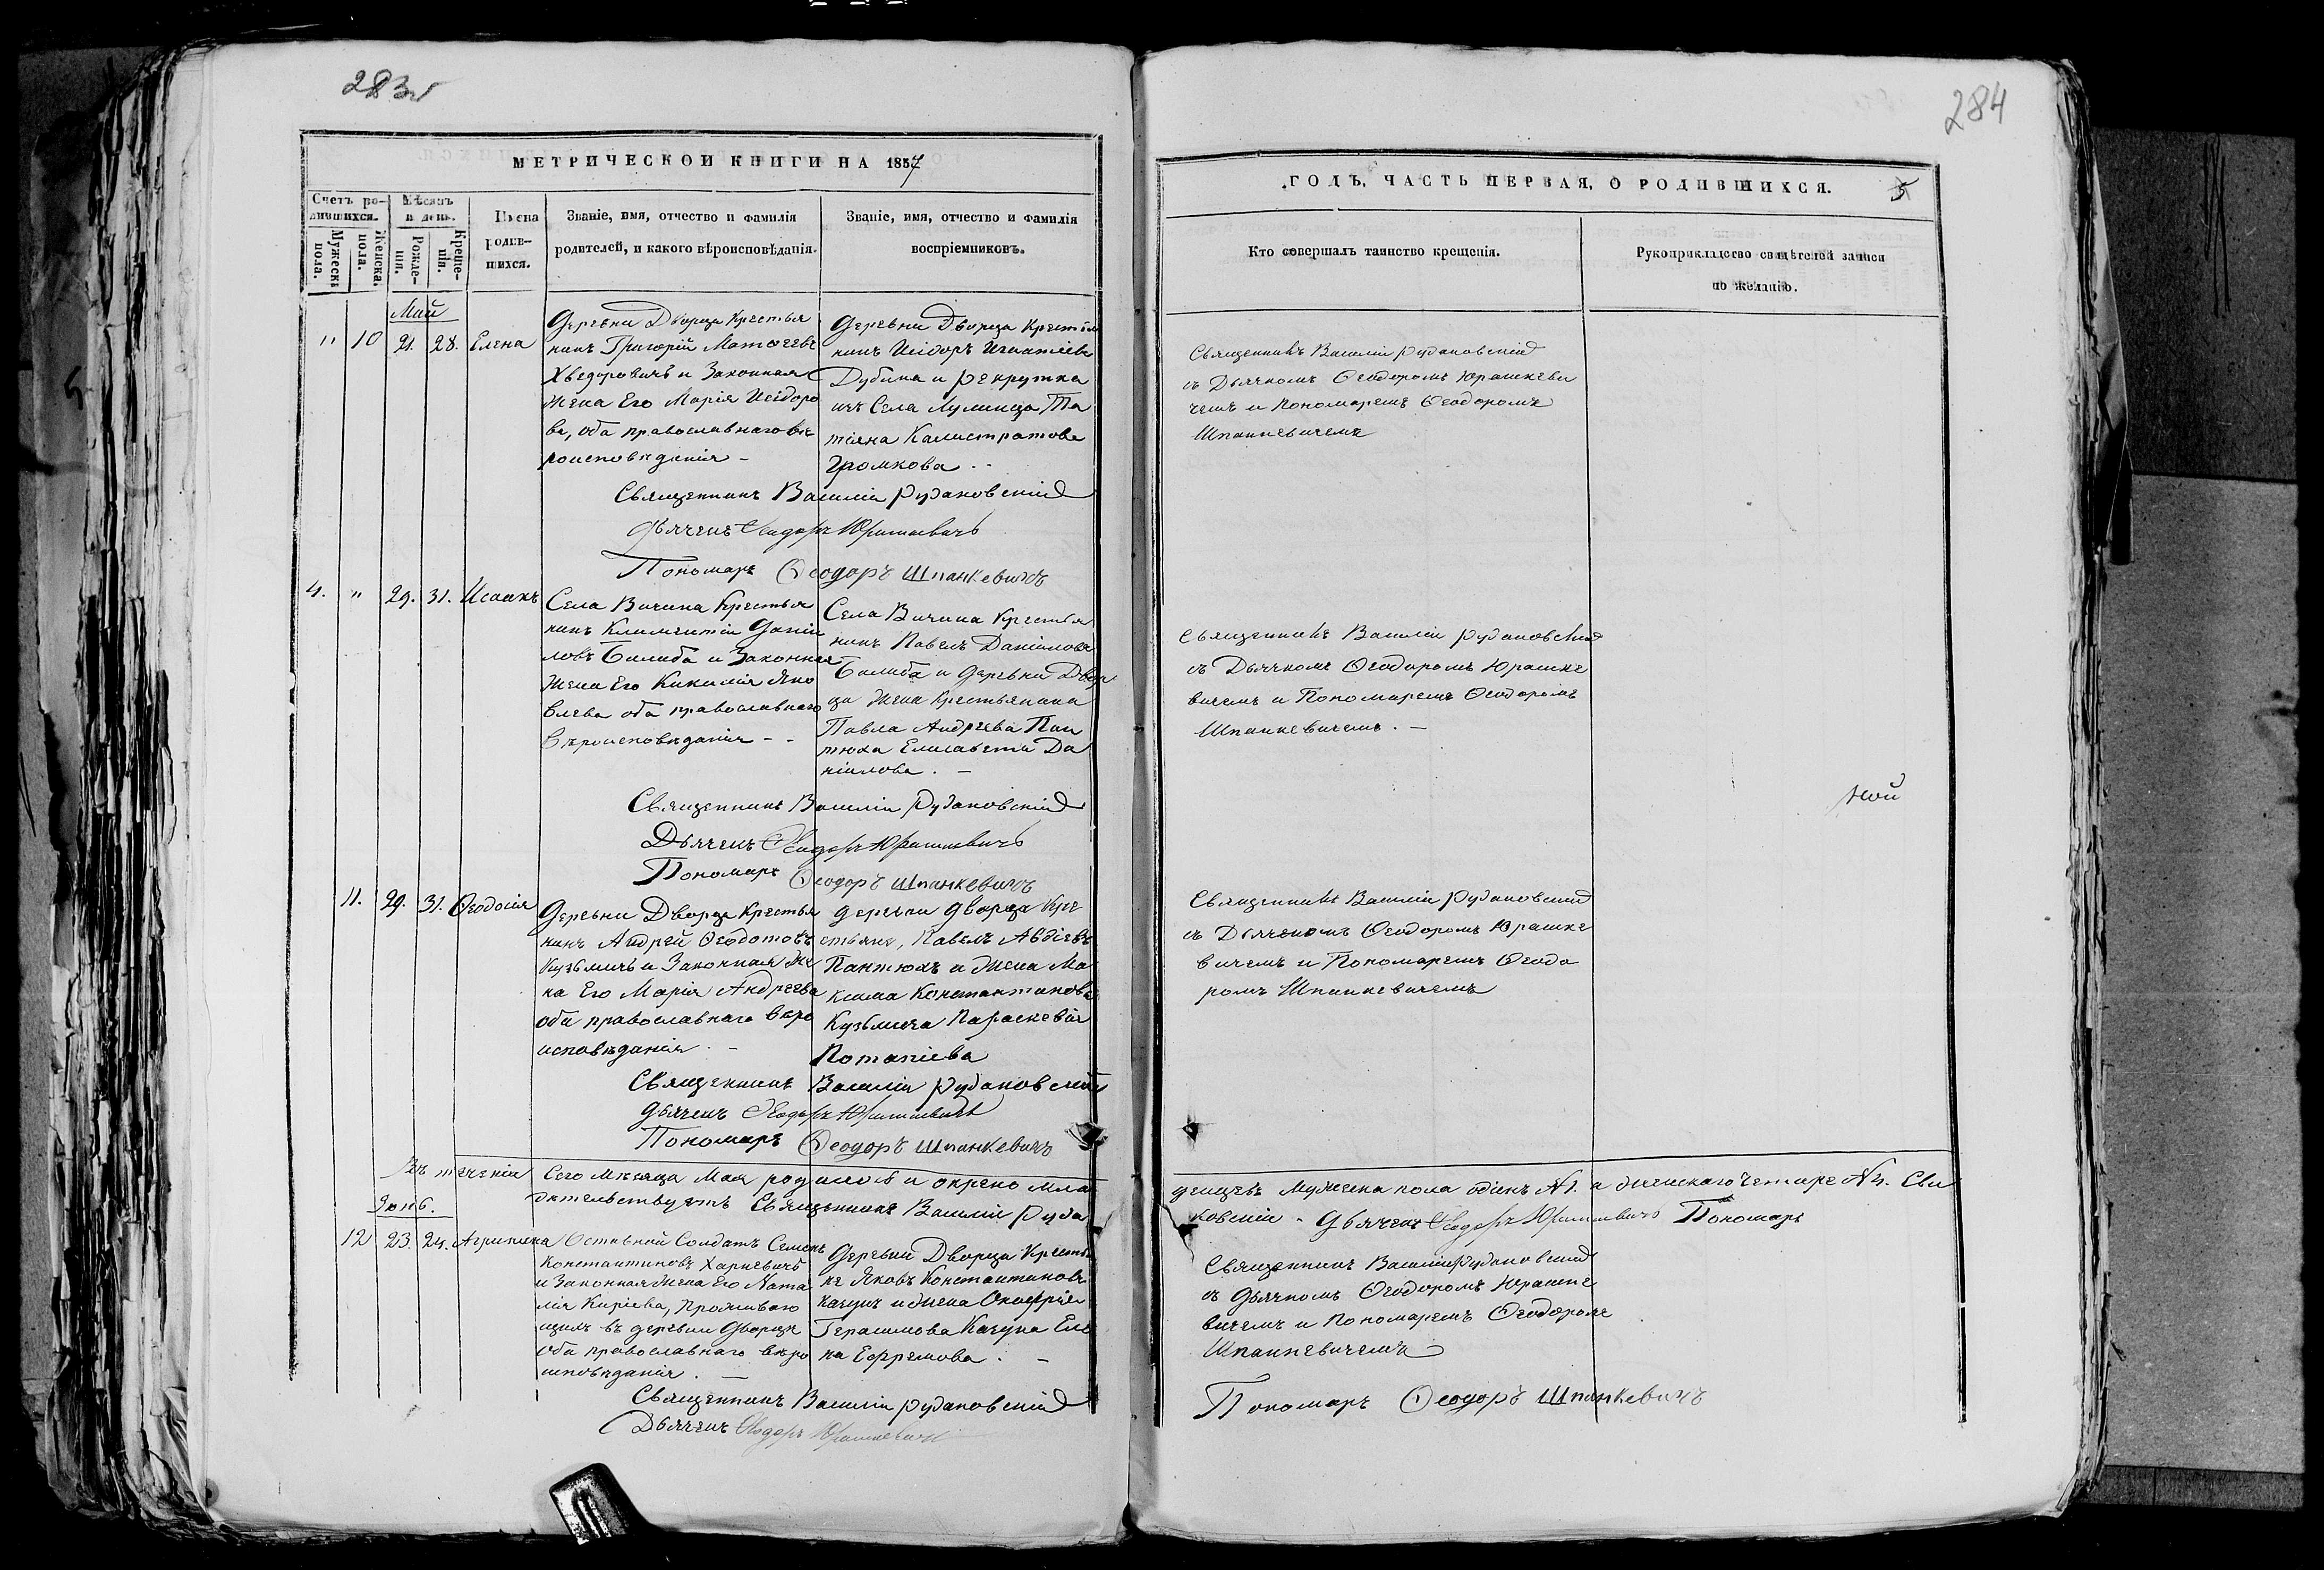 283
МЕТРИЧЕСКОЙ КНИГИ НА 1857
Счетъ ро-
дившихся.
Мѣсяцъ
и день.
Имена
родив-
шихся.
Званіе, имя, отчество и фамилія
родителей, и какого вѣроисповѣданія.
Званіе, имя, отчество и фамилія
воспріемниковъ.
Мужеска
пола.
Женска
пола.
Рожде-
нія.
Креще-
нія.
Май
" 10 21. 28. Елена
Деревни Дворца Крестья
нинъ Григорій Матѳеевъ
Хведоровичъ и Законная
Жена Его Марія Исідоро
ва, оба православнаго вѣ
роисповѣданія –
Деревни Дворца Крестья
нинъ Исідоръ Игнатіевъ
Дубина и рекрутка
изъ Села Лунинца Та
тіяна Калистратова
Громкова . .
Священникъ Василій Рудаковскій
Дьячекъ Ѳеодоръ Юрашкевичъ
Пономарь Ѳеодоръ Шпанкевичъ
4. " 29. 31. Исаакъ
Села Вичина Крестья
нинъ Климентій Даніи
ловъ Билиба и Законная
Жена Его Киликія Яко
влева оба православнаго
Вѣроисповѣданія – –
Села Вичина Крестья
нинъ Павелъ Даніиловъ
Билиба и Деревни Двор
ца Жена Крестьянина
Павла Андреева Пан
тюха Елисавета Да
ніилова . –
Священникъ Василій Рудаковскій
Дьячекъ Ѳеодоръ Юрашкевичъ
Пономарь Ѳеодоръ Шпанкевичъ
11. 29. 31. Ѳеодосія
Деревни Дворца Крестья
нинъ Андрей Ѳеодотовъ
Кузьмичъ и Законная Же
на Его Марія Андреева
оба православнаго вѣро
исповѣданія . –
Деревни Дворца Кре
стьяне, Павелъ Авдіевъ
Пантюхъ и Жена Ма
ксима Константинова
Кузьмича Параскевія
Потапіева
Священникъ Василій Рудаковскій
Дьячекъ Ѳеодоръ Юрашкевичъ
Пономарь Ѳеодоръ Шпанкевичъ
Въ теченіи Сего Мѣсяца Мая родилось и окрено мла
Іюнь.
дѣтельствуетъ Священникъ Василій Руда
12 23. 24. Агрипина
Отставной Солдатъ Семенъ
Константиновъ Харневичъ
и Законная Жена Его Ната
лія Киріева, Проживаю
щихъ въ деревни Дворцѣ
Оба православнаго вѣро
исповѣданія . –
Деревни Дворца Крестья
не Яковъ Константиновъ
Качунъ и Жена Онофрія
Герасимова Качуна Еле
на Ефремова . –
Священникъ Василій Рудаковскій
Дьячекъ Ѳеодоръ Юрашкевичъ
284
ГОДЪ, ЧАСТЬ ПЕРВАЯ, О РОДИВШИХСЯ.
5
Кто совершалъ таинство крещенія.
Рукоприкладство свидѣтелей записи
по желанію.
Священникъ Василій Рудаковскій
съ Дьячкомъ Ѳеодоромъ Юрашкеви
чемъ и Пономаремъ Ѳеодоромъ
Шпанкевичемъ
Священникъ Василій Рудаковскій
съ Дьячкомъ Ѳеодоромъ Юрашке
вичемъ и Пономаремъ Ѳеодоромъ
Шпанкевичемъ . –
Священникъ Василій Рудаковскій
съ Дьячкомъ Ѳеодоромъ Юрашке
вичемъ и Пономаремъ Ѳеодо
ромъ Шпанкевичемъ
денцевъ Мужеска пола одинъ №1. и Женскаго четыре №4. Сви
ковскій – Дьячекъ Ѳеодоръ Юрашкевичъ Пономарь
Священникъ Василій Рудаковскій
съ Дьячкомъ Ѳеодоромъ Юрашке
вичемъ и Пономаремъ Ѳеодоромъ
Шпанкевичемъ
Пономарь Ѳеодоръ Шпанкевичъ